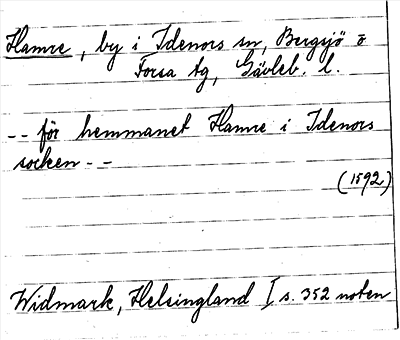 Hamre, by i Idenors sn, Bergsjö o
Forsa tg, Gävleb. l.
-- för hemmanet Hamre i Idenors
socken --
(1592)
Widmark, Helsingland I s. 352 noten